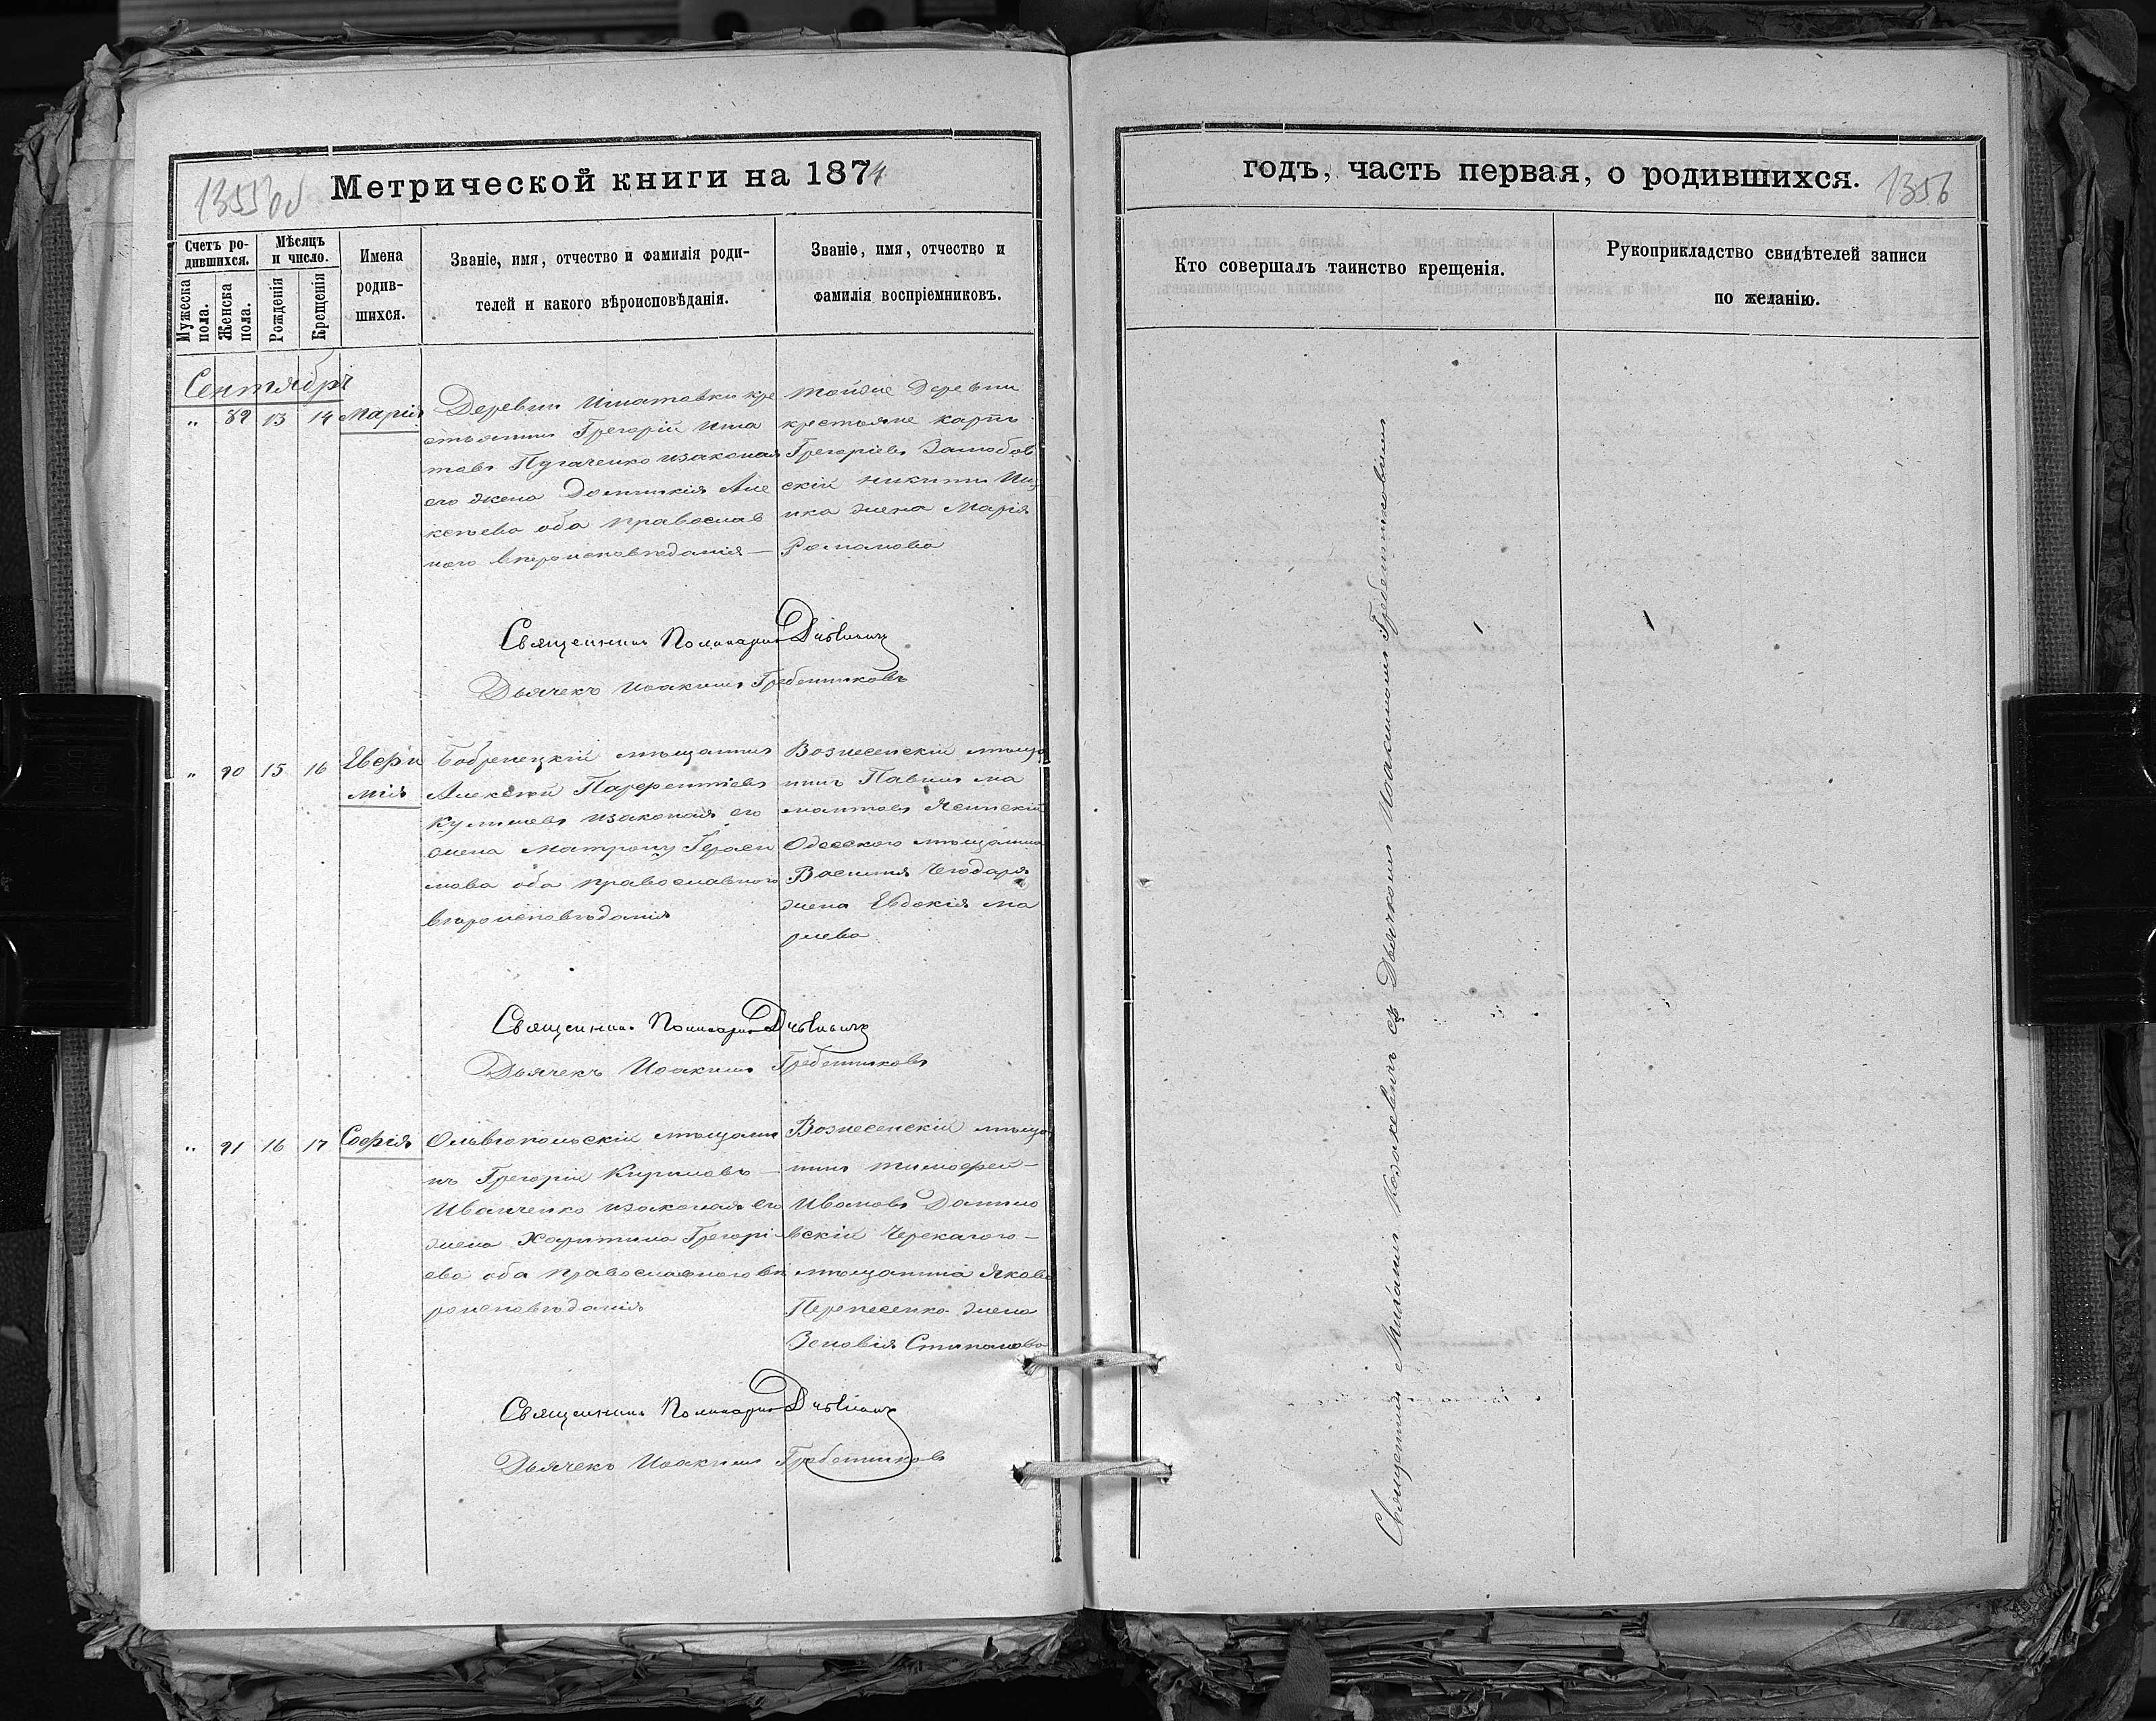 Метрической книги на 1874
1355об
Счетъ ро-
дившихся.
Мужеска
пола.
Женска
пола.
Мѣсяцъ
и число.
Рожденія
Крещенія
Имена
родив-
шихся.
Званіе, имя, отчество и фамилія роди-
телей и какого вѣроисповѣданія.
Званіе, имя, отчество и
фамилія воспріемниковъ.
Сентябрь
" 89 13 14 Марія
Деревни Игнатовки кре
стьянинъ Григорій Игна
товъ Пугаченко изаконая
его жена Домникія Але
ксѣева оба православ
ного вѣроисповѣданія —
тойже Деревни
крестьяне карпъ
Григоріевъ
скій никиты
жена Марія
Романова
Священникъ Поликарпъ
Дьячекъ Иоакимъ Гребенниковъ
" 90 15 16 Евфи
мія
Бобринецкій мѣщанинъ
Алексѣй Парфентіевъ
изаконая его
жена Матрону Гераси
мова оба православного
вѣроисповѣданія
Вознесенскій мѣща
нинъ Павелъ ма
Ясинскій
Одесского мѣщанина
Василія Чегодаря
жена Евдокія ма
Священникъ Поликарпъ
Дьячекъ Иоакимъ Гребенниковъ
" 91 16 17 Софія
Ольвіопольскій мѣщани
нъ Григорій Кириловъ —
Иванченко изаконая его
жена Харитина Григорі
ева оба православного вѣ
роисповѣданія
Вознесенскій мѣща
нинъ тимофей —
Ивановъ Данило
вскій —
мѣщанина Якова
жена
Зеновія Степанова
Священникъ Поликарпъ
Дьячекъ Иоакимъ Гребенниковъ
годъ, часть первая, о родившихся.
1356
Кто совершалъ таинство крещенія.
Рукоприкладство свидѣтелей записи
по желанію.
Священникъ съ Дьячкомъ Иоакимомъ Гребенниковымъ